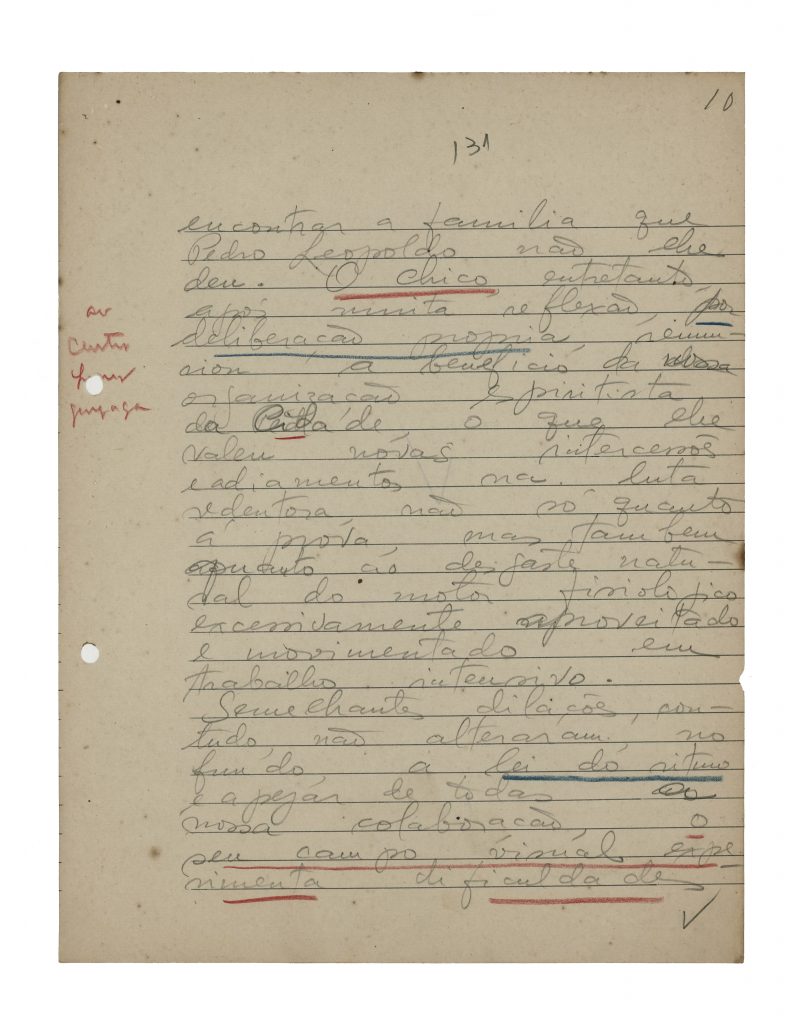 10
131
encontrar a familia que
Pedro Leopoldo não lhe
deu. O Chico, entretanto,
após muita reflexão, por
deliberação propria, renun-
ciou a beneficio da
organização Espiritista
da Cidade, o que lhe
valeu nóvas intercessões
e adiamentos na luta
redentora, não só quanto
á próva, mas tambem
quanto ao desgaste natu-
ral do motor fisiologico
excessivamente aproveitado
e movimentado em
trabalho intensivo.
Semelhantes dilações, con-
tudo, não alteraram no
fundo a lei do ritmo
e apezar de todas
nossa colaboracão, o
seu campo visual expe-
rimenta dificuldades
ao
Centro
Luiz
gonzaga